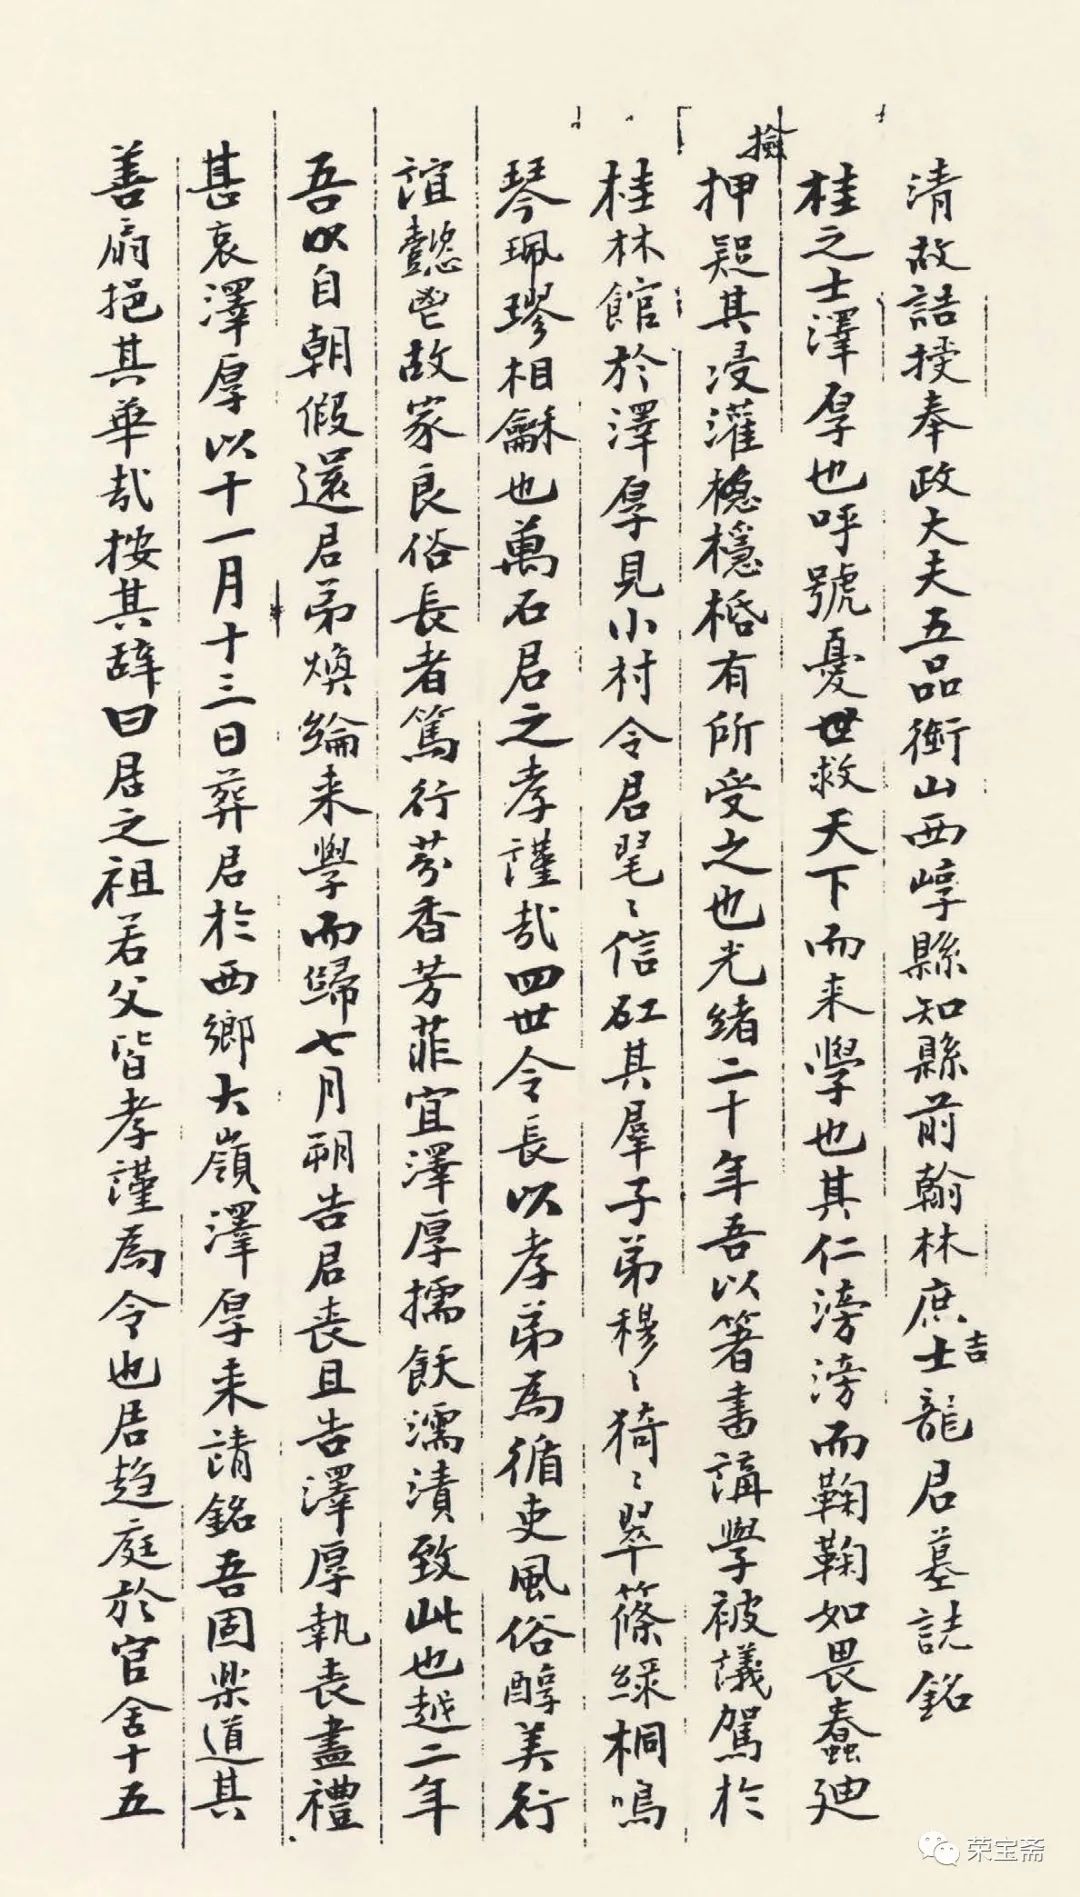 清故誥授奉政大夫五品銜山西崞縣知縣前翰林庶吉士龍君墓誌銘
桂之士澤厚也呼號憂世救天下而来學也其仁滂滂而鞠鞠如畏蠢廸
押檢疑其浸灌檼檼桰有所受之也光緒二十年吾以箸書講學被議駕於
桂林館於澤厚見小村令君毣〻信矼其羣子弟穆〻猗〻翠篠綠桐鳴
琴珮璆相龢也萬石君之孝謹哉四世令長以孝弟為循吏風俗醇美行
誼懿鬯故家良俗長者篤行芬香芳菲宜澤厚擩飫濡漬致此也越二年
吾以自朝假還君弟煥綸来學而歸七月朔告君喪且告澤厚執喪盡禮
甚哀澤厚以十一月十三日葬君於西鄉大嶺澤厚来請銘吾固樂道其
善扇挹其華哉按其辭曰君之祖若父皆孝謹為令也居趋庭於官舍十五
荣宝斋